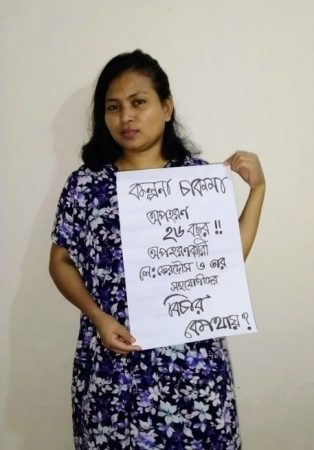 কল্পনা চাকমা
অপহরণ
২৬ বছর !!
অপহরণকারী
লেঃ ফেরদৌস ও তার
সহযোগীদের
বিচার
কোথায় ?